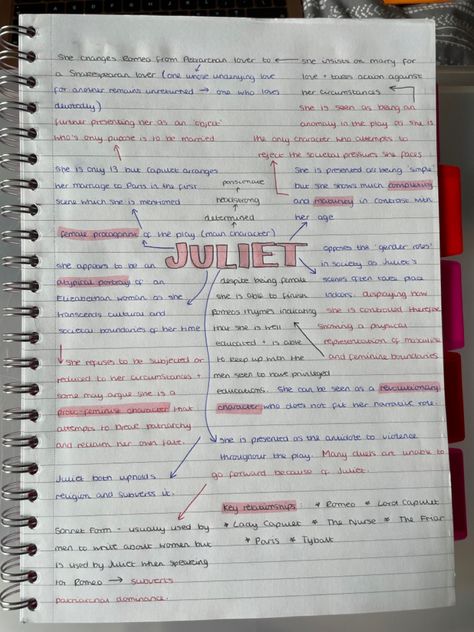 She changes Romeo from Petrarchan lover to
a Shakespearean lover (one whose underlying love
for another remains unreturned → one who loves
devotedly)
further presenting her as an 'object'
who's only purpose is to be married
she insists on marry for
love + takes action against
her circumstances
she is seen as being an
anomaly in the play as she is
the only character who attempts to
reject the societal pressures she faces
She is only 13 but Capulet arranges
her marriage to Paris in the first
scene which she is mentioned
passionate
headstrong
determined
She is presented as being 'simple'
but she shows much complexity
and maturity in contrast with
her age
female protagonist of the play (main character)
JULIET
She appears to be an
atypical portrayal of an
Elizabethan woman as she
transcends cultural and
societal boundaries of her time
despite being female
she is able to finish
Romeo's rhymes indicating
that she is well
educated + is able
to keep up with the
men seen to have privileged
educations. She can be seen as a revolutionary
character who does not fit her narrative role.
opposes the 'gender roles'
in society as Juliet's
scenes often take place
indoors, displaying how
she is controlled therefore
showing a physical
representation of masculine
and feminine boundaries
She refuses to be subjected or
reduced to her circumstances +
some may argue she is a
proto-feminist character that
attempts to break patriarchy
and reclaim her own fate.
She is presented as the antidote to violence
throughout the play. Many duels are unable to
go forward because of Juliet.
Juliet both upholds
religion and subverts it.
Sonnet Form - usually used by
men to write about women but
is used by Juliet when speaking
for Romeo → subverts
patriarchal dominance.
Key relationships * Romeo * Lord Capulet
* Lady Capulet * The Nurse * The Friar
* Paris * Tybalt